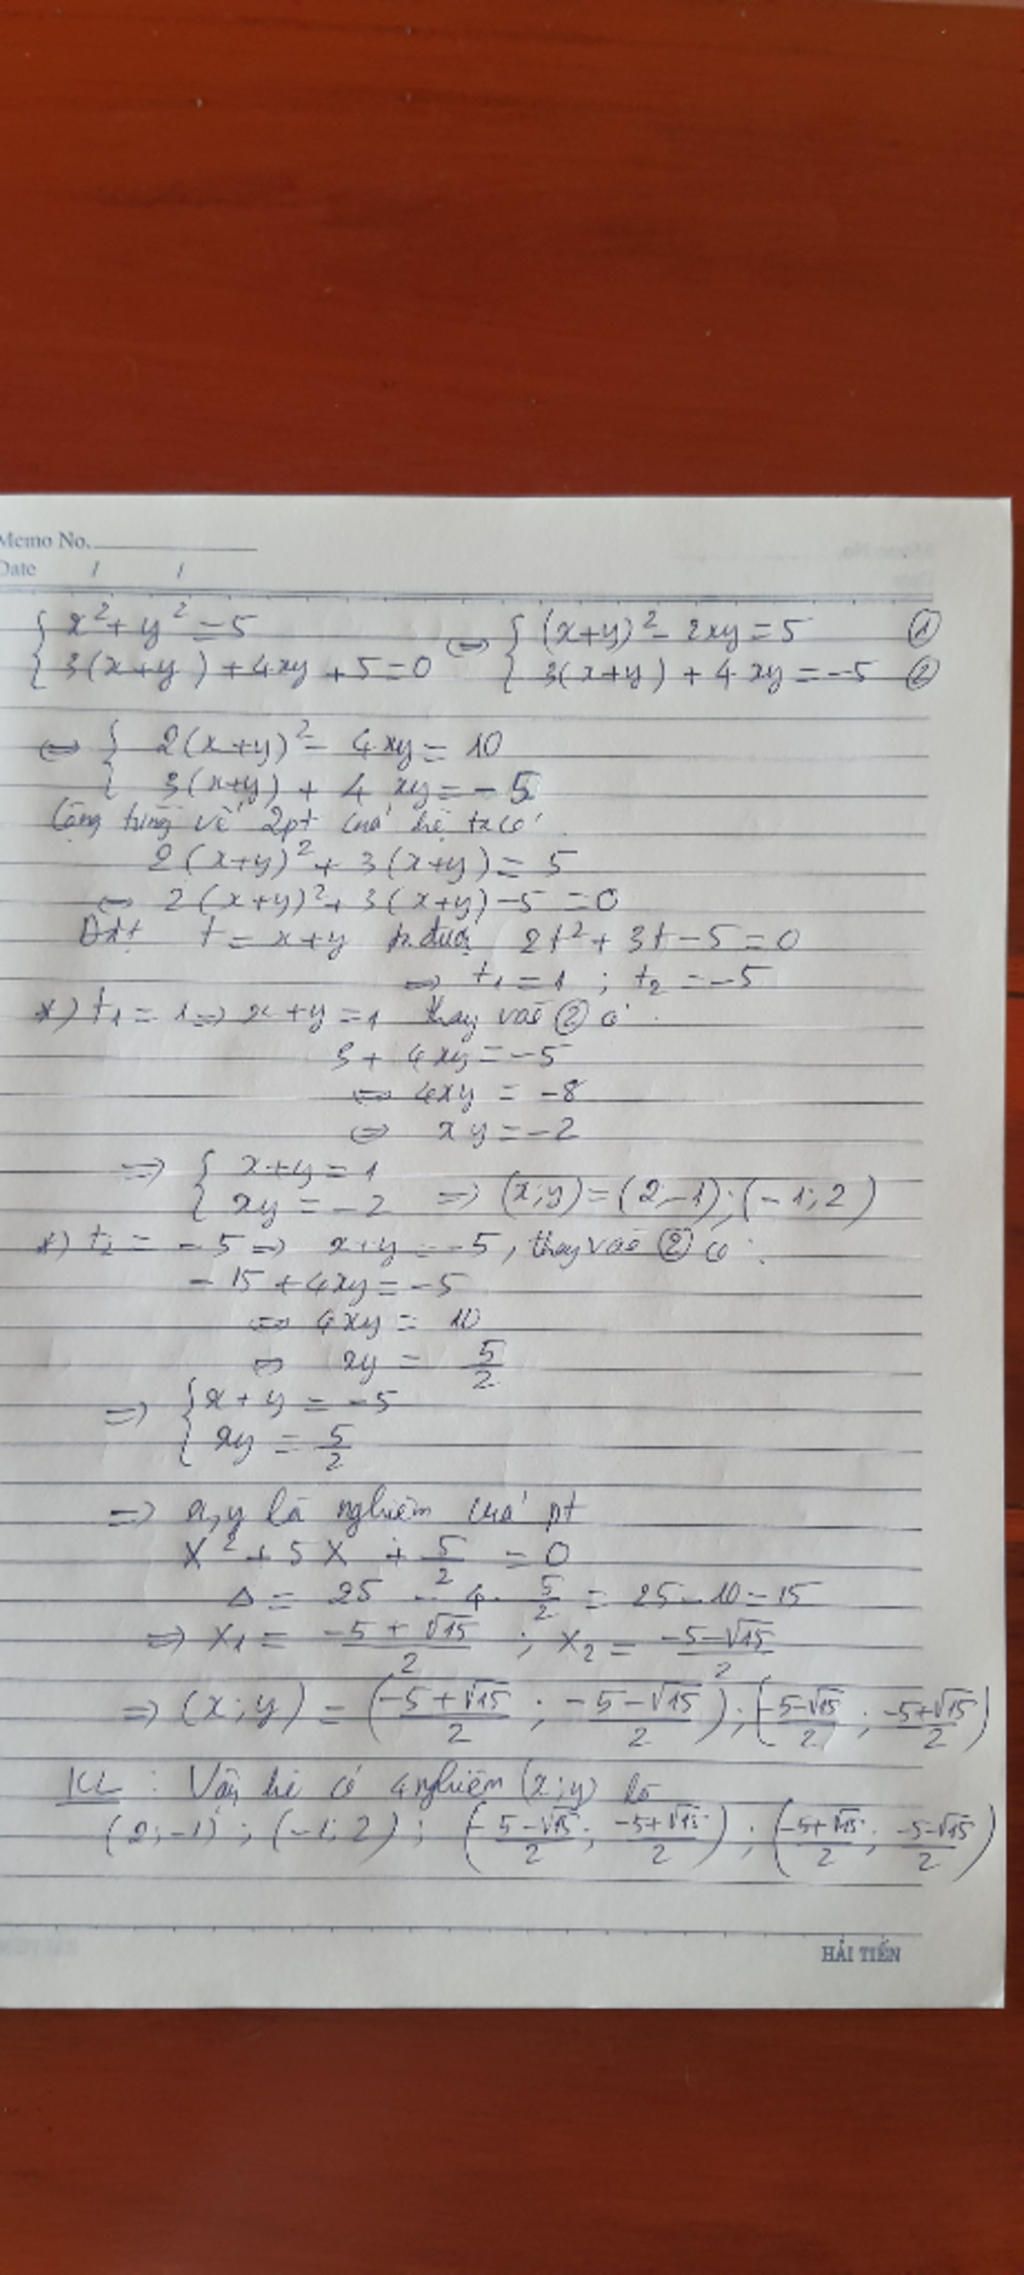 Memo No.
Date / /
{ x² + y² = 5 <=> { (x+y)² - 2xy = 5 ①
{ 3(x+y) + 4xy + 5 = 0 { 3(x+y) + 4xy = -5 ②
<=> { 2(x+y)² - 4xy = 10
{ 3(x+y) + 4xy = -5
Cộng từng vế 2pt của hệ ta có:
2(x+y)² + 3(x+y) = 5
<=> 2(x+y)² + 3(x+y) - 5 = 0
Đặt t = x+y pt được 2t² + 3t - 5 = 0
<=> t₁ = 1 ; t₂ = -5
*) t₁ = 1 => x+y = 1 thay vào ② có:
3 + 4xy = -5
<=> 4xy = -8
<=> xy = -2
=> { x+y = 1
{ xy = -2 => (x;y) = (2;-1); (-1;2)
*) t₂ = -5 => x+y = -5, thay vào ② có:
-15 + 4xy = -5
<=> 4xy = 10
<=> xy = 5/2
=> { x+y = -5
{ xy = 5/2
=> x,y là nghiệm của pt
X² + 5X + 5/2 = 0
Δ = 25 - 4. 5/2 = 25-10=15
=> X₁ = (-5+√15)/2 ; X₂ = (-5-√15)/2
=> (x;y) = ((-5+√15)/2 ; (-5-√15)/2) ; ((-5-√15)/2 ; (-5+√15)/2)
KL : Vậy hệ có 4 nghiệm (x;y) là
(2;-1) ; (-1;2) ; ((-5-√15)/2 ; (-5+√15)/2) ; ((-5+√15)/2 ; (-5-√15)/2)
HẢI TIẾN